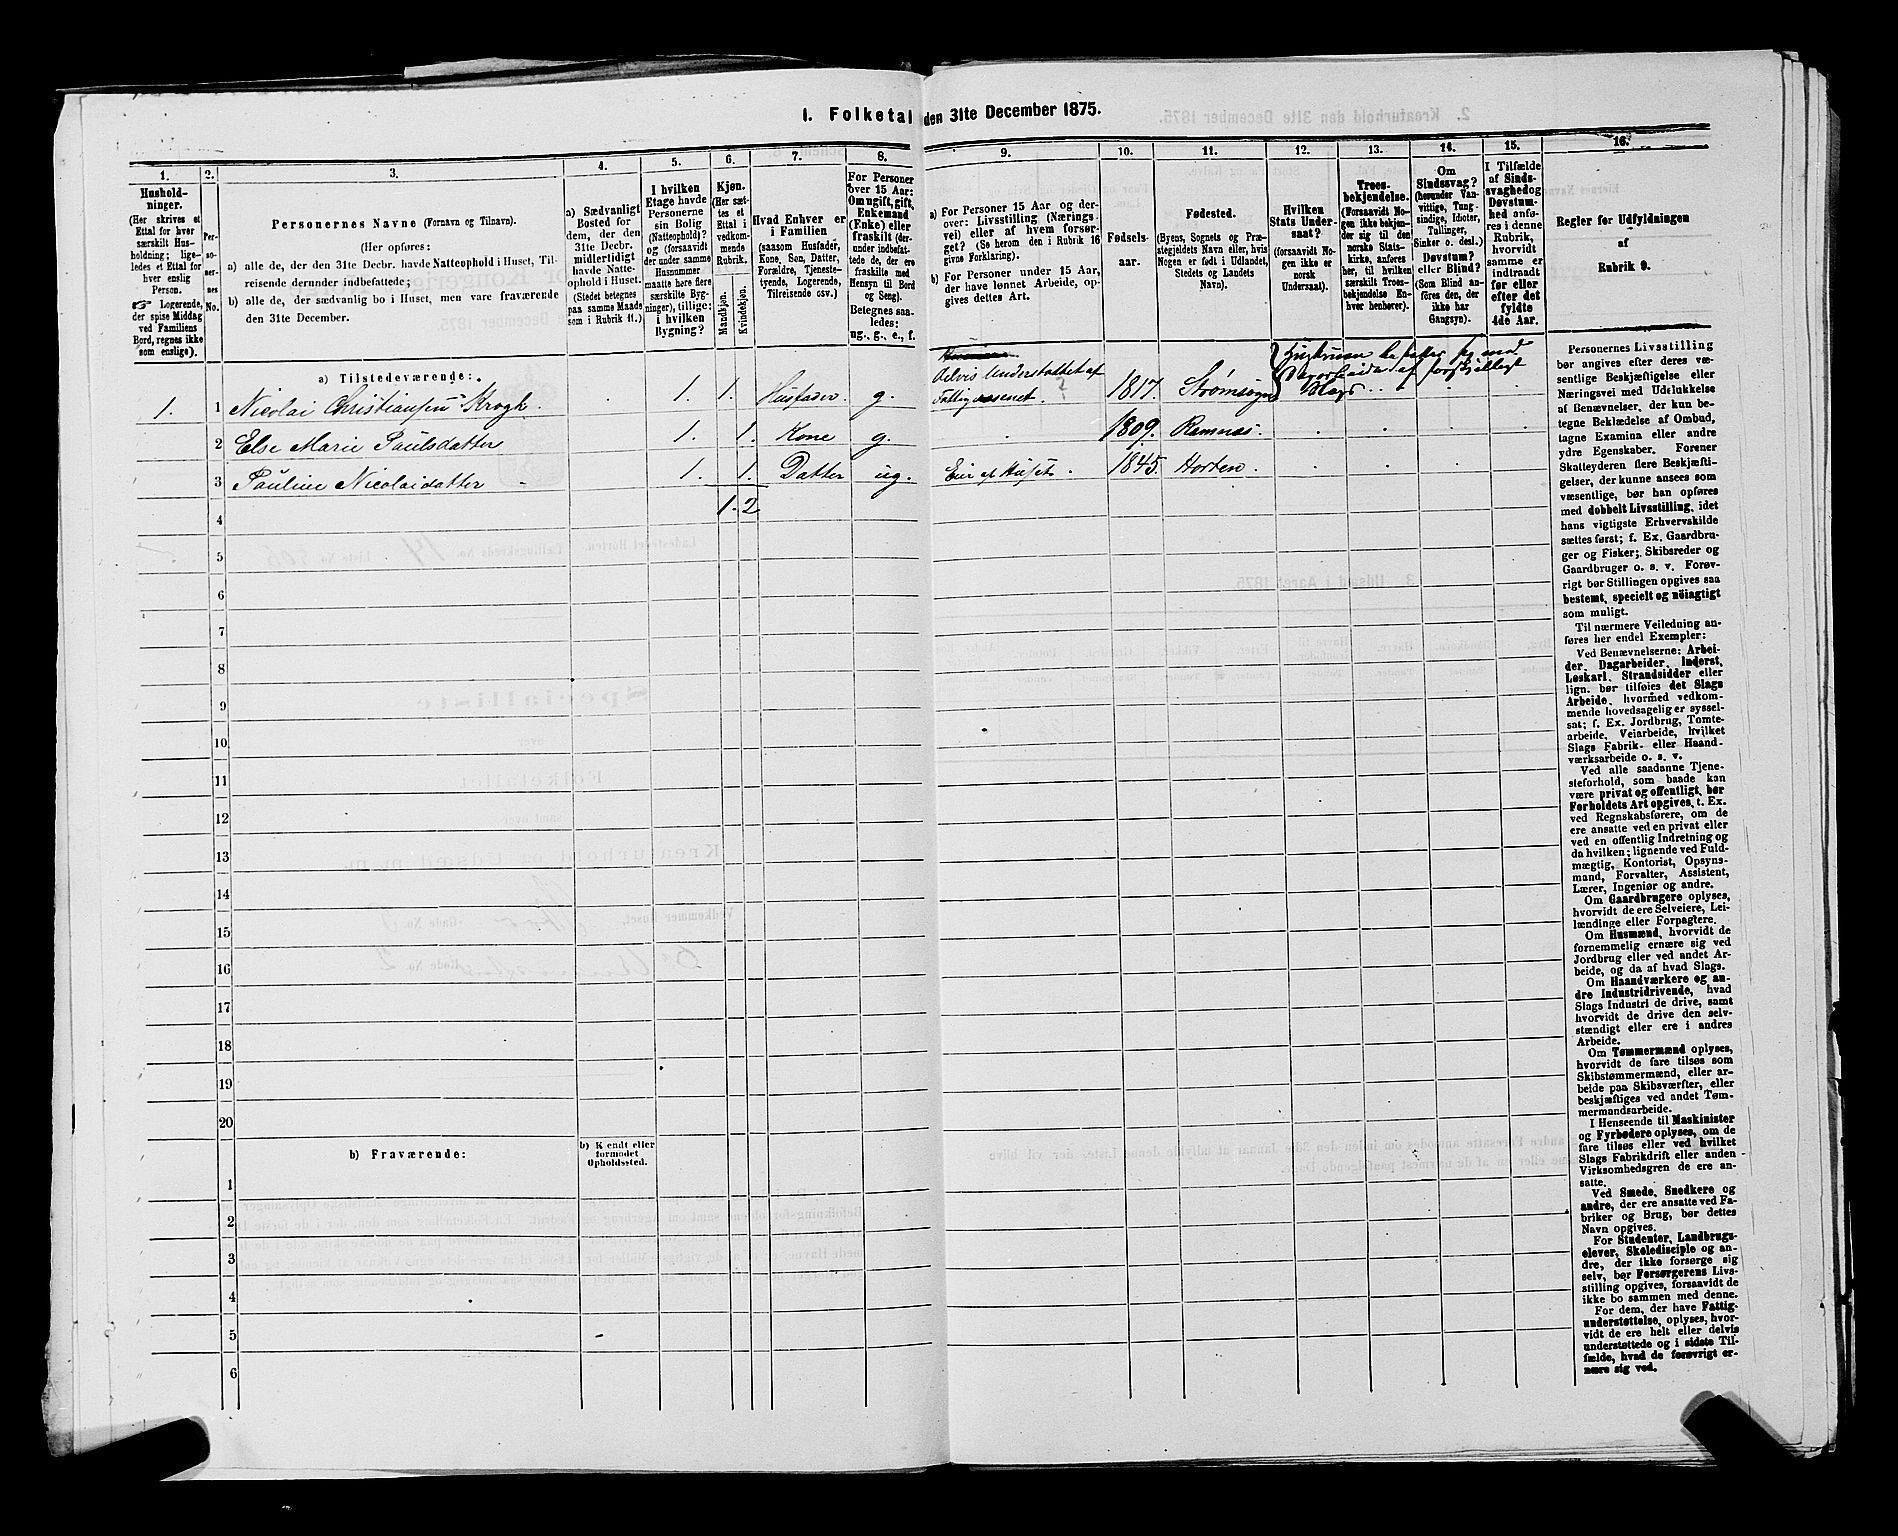 1. Folketal den 31te December 1875.
1.
Hushold-
ninger.
(Her skrives et
Ettal for hver
særskilt Hus-
holdning; lige-
ledes et Ettal for
hver enslig
Person.
☞ Logerende,
der spise Middag
ved Familiens
Bord, regnes ikke
som enslige).
2.
Per-
so-
ner-
nes
No.
3.
Personernes Navne (Fornavn og Tilnavn).
(Her opføres:
a) alle de, der den 31te Decbr. havde Natteophold i Huset, Til-
reisende derunder indbefattede;
b) alle de, der sædvanlig bo i Huset, men vare fraværende
den 31te December.
4.
a) Sædvanligt
Bosted for
dem, der den
31te Decbr.
midlertidigt
havde Natte-
ophold i Huset.
(Stedet betegnes
paa samme Maade
som i Rubrik 11.)
5.
I hvilken
Etage havde
Personerne
sin Bolig
(Natteophold)?
og (forsaavidt
der under samme
Husnummer
maatte høre flere
særskilte Byg-
ninger), tillige:
i hvilken
Bygning?
6.
Kjøn.
(Her sæt-
tes et
Ettal i
vedkom-
mende
Rubrik.
Mandkjøn.
Kvindekjøn.
7.
Hvad Enhver er
i Familien
(saasom Husfader,
Kone, Søn, Datter,
Forældre, Tjeneste-
tyende, Logerende,
Tilreisende osv.)
8.
For Personer
over 15 Aar:
Om ugift, gift,
Enkemand
(Enke) eller
fraskilt (der-
under indbefat-
tede de, der ere
fraskilte med
Hensyn til Bord
og Seng).
Betegnes saa-
ledes:
ug., g., e., f.
9.
a) For Personer 15 Aar og der-
over: Livsstilling (Nærings-
vei) eller af hvem forsør-
get? (Se herom den i Rubrik 16
givne Forklaring).
b) For Personer under 15 Aar,
der have lønnet Arbeide, op-
gives dettes Art.
10.
Fødsels-
aar.
11.
Fødested.
(Byens, Sognets og Præ-
stegjeldets Navn eller, hvis
Nogen er født i Udlandet,
Stedets og Landets
Navn).
12.
Hvilken
Stats Under-
saat?
(forsaavidt No-
gen ikke er
norsk
Undersaat).
13.
Troes-
bekjendelse.
(Forsaavidt No-
gen ikke bekjen-
der sig til den
norske Stats-
kirke, anføres
her, til hvilken
særskilt Troes-
bekjendelse En-
hver henhører).
14.
Om
Sindssvag?
(herunder Van-
vittige, Tung-
sindige, Idioter,
Tullinger,
Sinker o. desl.)
Døvstum?
eller Blind?
(Som Blind an-
føres den, der
ikke har
Gangsyn).
15.
I Tilfælde
af Sinds-
svaghed og
Døvstum-
hed anfø-
res i denne
Rubrik,
hvorvidt
samme er
indtraadt
før eller
efter det
fyldte
4de Aar.
16.
Regler for Udfyldningen
af
Rubrik 9.
a) Tilstedeværende:
1. 1 Nicolai Christiansen Krogh. 1. 1. Husfader. g. Delvis Understøttet af Fattigvæsenet. ? 1817. Strømsogn
2 Else Marie Paulsdatter 1. 1. Kone g. 1809. Ramnæs.
3 Pauline Nicolaidatter 1. 1. Datter ug. 1845. Horten.
1. 2
4
5
6
7
8
9
10
11
12
13
14
15
16
17
18
19
20
b) Fraværende:
b) Kjendt eller
formodet
Opholdssted.
1
2
3
4
5
6
Personernes Livsstilling
bør angives efter deres væ-
sentlige Beskjæftigelse eller
Næringsvei med Udelukkelse
af Benævnelser, der kun be-
tegne Beklædelse af Ombud,
tagne Examina eller andre
ydre Egenskaber. Forener
Skatteyderen flere Beskjæfti-
gelser, der kunne ansees som
væsentlige, bør han opføres
med dobbelt Livsstilling, idet
hans vigtigste Erhvervskilde
sættes først; f. Ex. Gaardbru-
ger og Fisker; Skibsreder og
Gaardbruger o. s. v. Forøv-
rigt bør Stillingen opgives saa
bestemt, specielt og nöiagtigt
som muligt.
Til nærmere Veiledning an-
føres her endel Exempler:
Ved Benævnelserne: Arbei-
der, Dagarbeider, Inderst,
Løskarl, Strandsidder eller
lign. bør tilføies det Slags
Arbeide, hvormed vedkom-
mende hovedsagelig er syssel-
sat; f. Ex. Jordbrug, Tomte-
arbeide, Veiarbeide, hvilket
Slags Fabrik- eller Haand-
værksarbeide o. s. v.
Ved alle saadanne Tjene-
steforhold, som baade kan
være privat og offentligt, bør
Forholdets Art opgives, t. Ex.
ved Regnskabsførere, om de
ere ansatte ved en privat eller
ved en offentlig Indretning og
da hvilken; lignende ved Fuld-
mægtig, Kontorist, Opsyns-
mand, Forvalter, Assistent,
Lærer, Ingeniør og andre.
Om Gaardbrugere oplyses,
hvorvidt de ere Selveiere, Lei-
lændinge eller Forpagtere.
Om Husmænd, hvorvidt de
fornemmelig ernære sig ved
Jordbrug eller ved andet Ar-
beide, og da af hvad Slags.
Om Haandværkere og an-
dre Industridrivende, hvad
Slags Industri de drive, samt
hvorvidt de drive den selv-
stændigt eller ere i andres
Arbeide.
Om Tømmermænd oplyses,
hvorvidt de fare tilsøs som
Skibstømmermænd, eller ar-
beide paa Skibsværfter, eller
beskjæftiges ved andet Tøm-
mermandsarbeide.
I Henseende til Maskinister
og Fyrbødere oplyses, om de
fare tilsøs eller ved hvilket
Slags Fabrikdrift eller anden
Virksomhedsgren de ere an-
satte.
Ved Smede, Snedkere og
andre, der ere ansatte ved Fa-
briker og Brug, bør dettes
Navn opgives.
For Studenter, Landbrugs-
elever, Skoledisciple og an-
dre, der ikke forsørge sig
selv, bør Forsørgerens Livs-
stilling opgives, forsaavidt de
ikke bo sammen med denne.
For dem, der have Fattig-
understøttelse, oplyses, hvor-
vidt de ere helt eller delvis
understøttede og i sidste Til-
fælde, hvad de forøvrigt er-
nære sig ved.